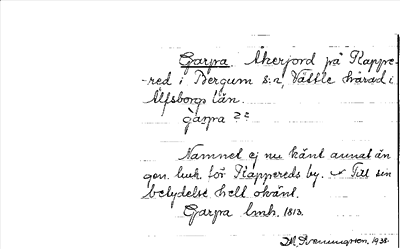 Garpa. Åkerjord på Kappe-
red i Bergum s:n, Vättle härad i
Älfsborgs län.
gàrpa
Namnet ej nu känt annat än
gen. lmk. för Kappereds by. Till sin
betydelse helt okänt.
Garpa lmh. 1813.
1938.